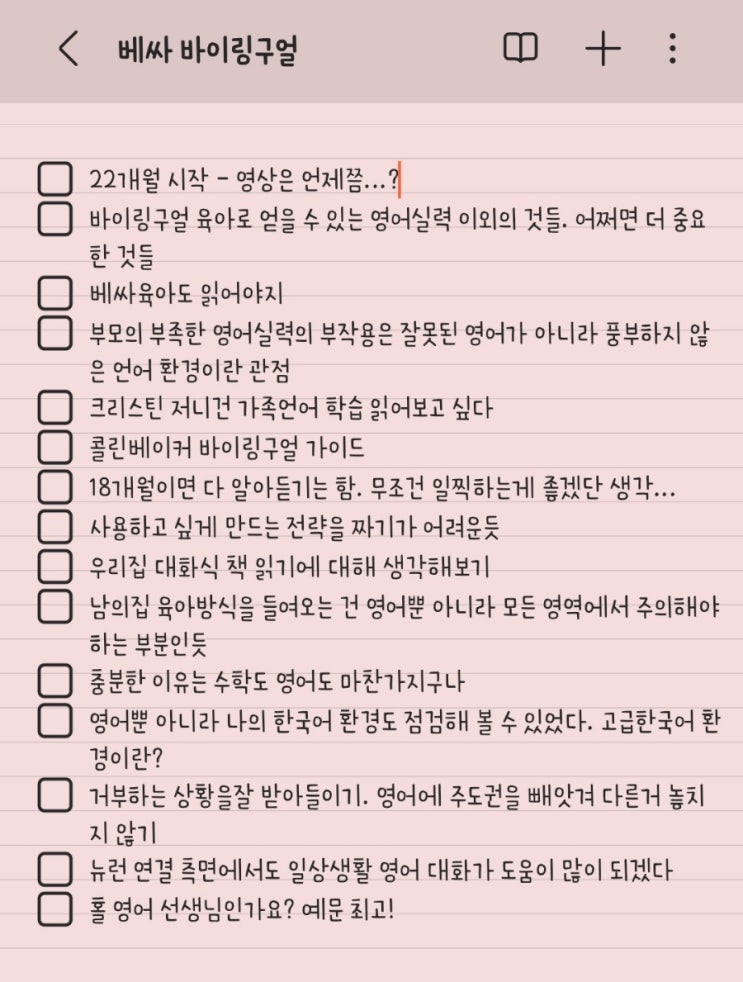 베싸 바이링구얼
22개월 시작 - 영상은 언제쯤...?
바이링구얼 육아로 얻을 수 있는 영어실력 이외의 것들. 어쩌면 더 중요
한 것들
베싸육아도 읽어야지
부모의 부족한 영어실력의 부작용은 잘못된 영어가 아니라 풍부하지 않
은 언어 환경이란 관점
크리스틴 저니건 가족언어 학습 읽어보고 싶다
콜린베이커 바이링구얼 가이드
18개월이면 다 알아듣기는 함. 무조건 일찍하는게 좋겠단 생각...
사용하고 싶게 만드는 전략을 짜기가 어려운듯
우리집 대화식 책 읽기에 대해 생각해보기
남의집 육아방식을 들여오는 건 영어뿐 아니라 모든 영역에서 주의해야
하는 부분인듯
충분한 이유는 수학도 영어도 마찬가지구나
영어뿐 아니라 나의 한국어 환경도 점검해 볼 수 있었다. 고급한국어 환
경이란?
거부하는 상황을잘 받아들이기. 영어에 주도권을 빼앗겨 다른거 놓치
지 않기
뉴런 연결 측면에서도 일상생활 영어 대화가 도움이 많이 되겠다
홀 영어 선생님인가요? 예문 최고!